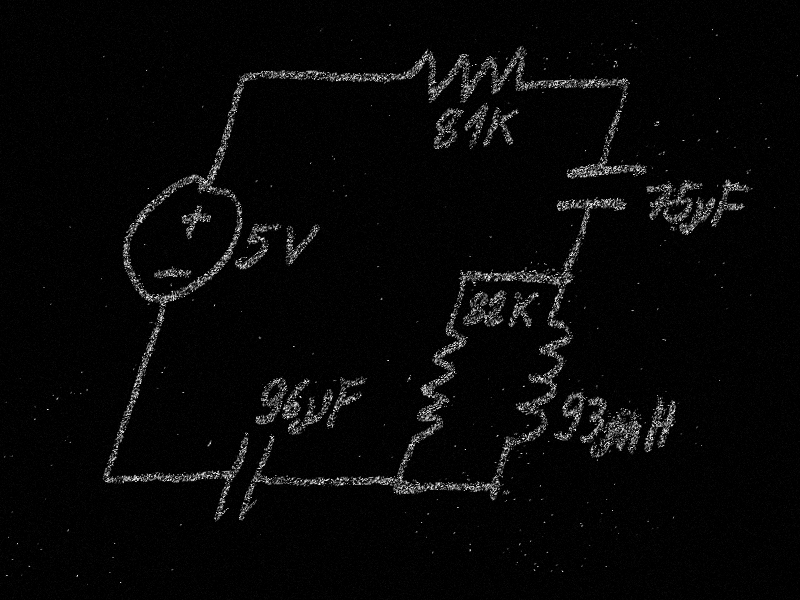 81K
75µF
+
5V
-
82K
96µF
93mH